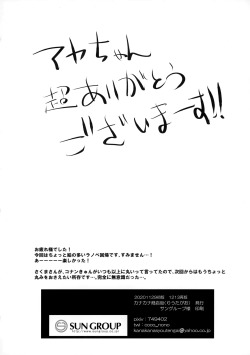 アヤちゃん
超ありがとう
ございまーす!!
お疲れ様でした!
今回はちょっと絵の多いラノベ風味です、すみません…!
あーーーーー楽しかった!
さくまさんが、コナンきゅんがいつも以上に丸いって言ってたので、次回からはもうちょっと
丸みをおさえたい所存です…、完全に無意識だった…。
20201129初版 1213再版
カナカナ商店街(りうたがお) 発行
サングループ様 印刷
pixiv:749402
twi:coco_nono
kanakanasyoutengai@yahoo.co.jp
SUN GROUP